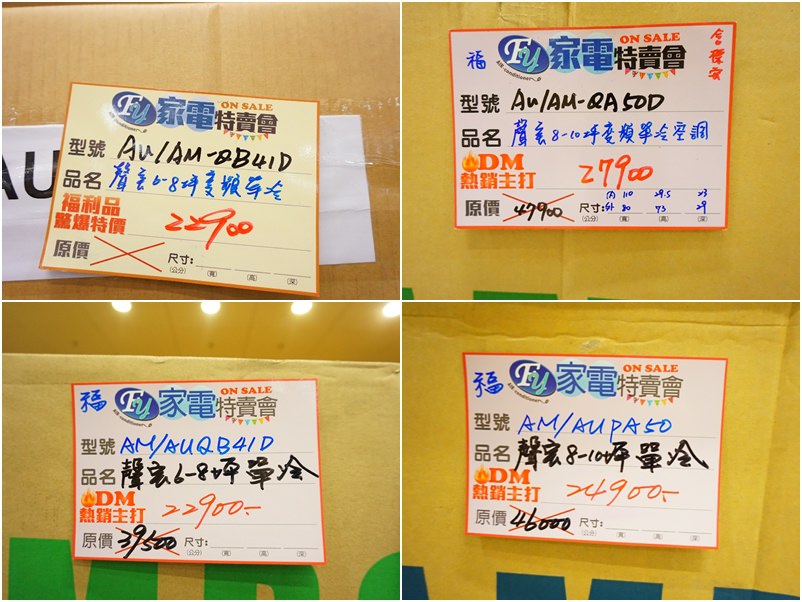 AU
FU 家電 ON SALE 特賣會
Air conditioner
型號 AU/AM-QB41D
品名 聲宝6-8坪變頻單冷
福利品
驚爆特價 22900
原價
尺寸:
(公分) (寬) (高) (深)
福 FU 家電 ON SALE 特賣會 含標安
Air conditioner
型號 AU/AM-QA50D
品名 聲宝8-10坪變頻單冷空調
DM
熱銷主打 27900
原價 47900 尺寸: 內 110 29.5 23
外 80 73 29
(公分) (寬) (高) (深)
福 FU 家電 ON SALE 特賣會
Air conditioner
型號 AM/AUQB41D
品名 聲宝6-8坪單冷
DM
熱銷主打 22900.-
原價 39500 尺寸:
(公分) (寬) (高) (深)
福 FU 家電 ON SALE 特賣會
Air conditioner
型號 AM/AUPA50
品名 聲宝8-10坪單冷
DM
熱銷主打 24900.-
原價 46000 尺寸:
(公分) (寬) (高) (深)